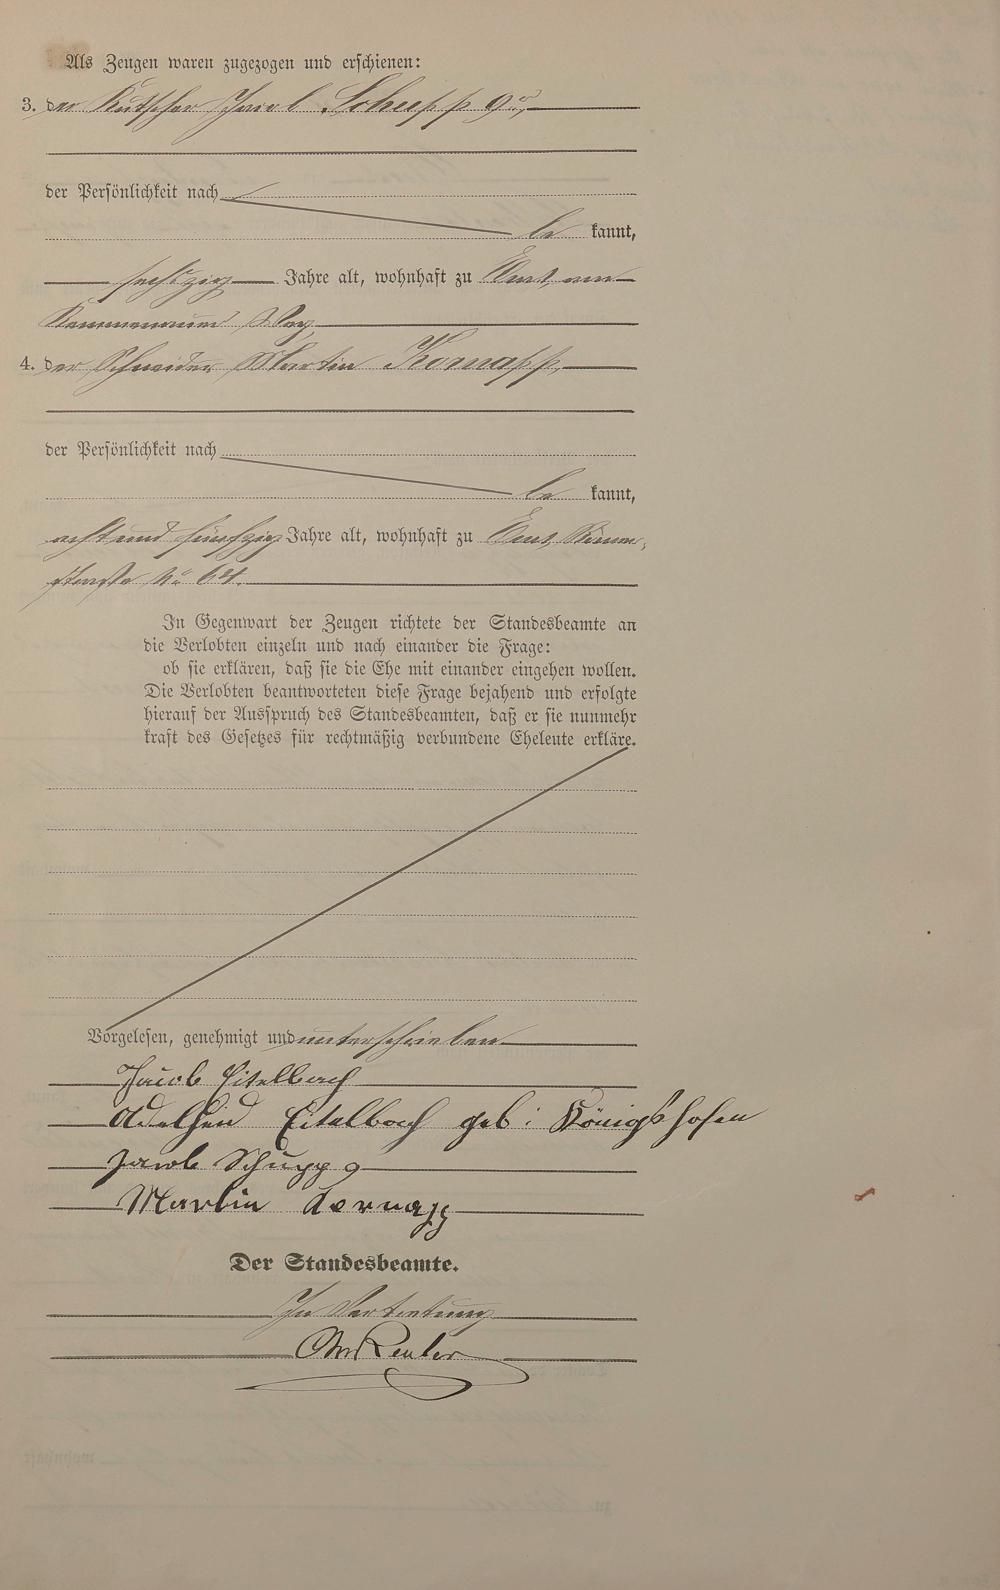 Als Zeugen waren zugezogen und erschienen:
3. der Kutscher Jacob Schupp 9r,
der Persönlichkeit nach
be kannt,
sechszig Jahre alt, wohnhaft zu Ems, am
Weg
4. der Schneider Martin Kornapp,
der Persönlichkeit nach
be kannt,
acht und fünfzig Jahre alt, wohnhaft zu Ems, Römer-
straße No 64.
In Gegenwart der Zeugen richtete der Standesbeamte an
die Verlobten einzeln und nach einander die Frage:
ob sie erklären, daß sie die Ehe mit einander eingehen wollen.
Die Verlobten beantworteten diese Frage bejahend und erfolgte
hierauf der Ausspruch des Standesbeamten, daß er sie nunmehr
kraft des Gesetzes für rechtmäßig verbundene Eheleute erkläre.
Vorgelesen, genehmigt und unterschrieben
Jacob Eitelbach
Adelheid Eitelbach geb: Königshofen
Jacob Schupp 9
Martin Kornapp
Der Standesbeamte.
In Vertretung
Reuter